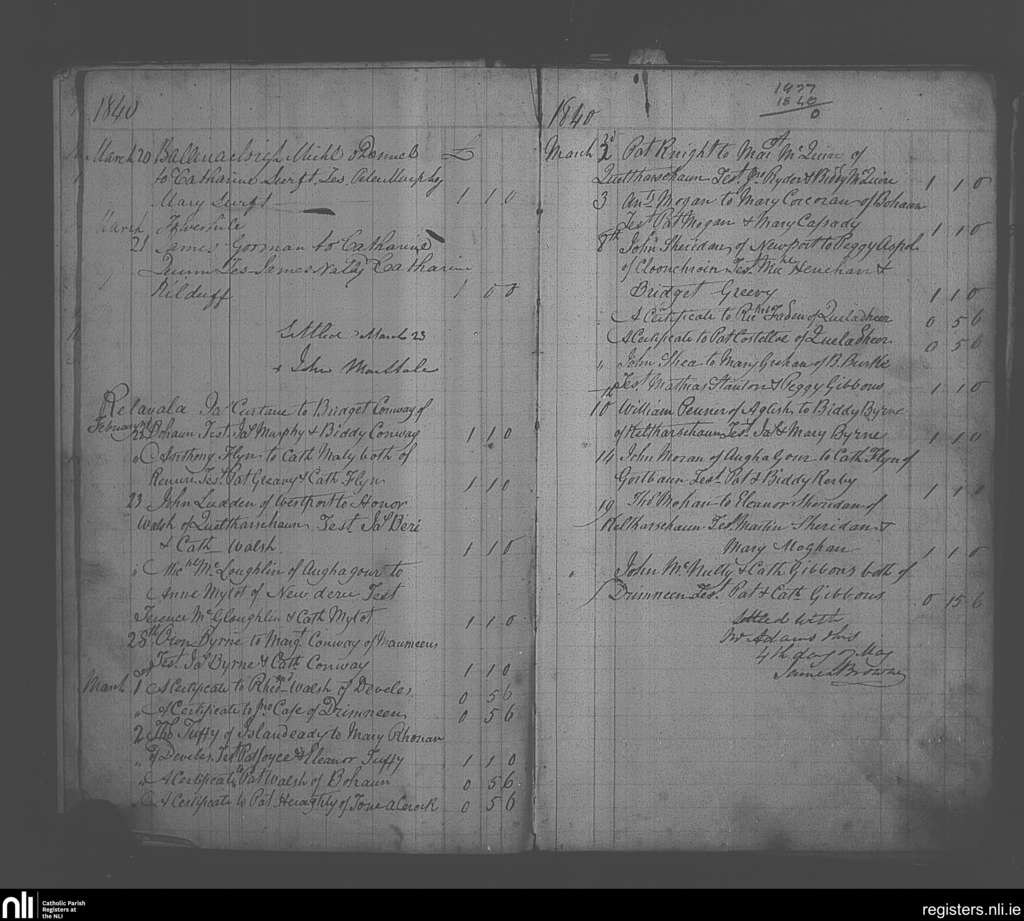 1840
March 20 Ballinacloigh Michl
to Catharine Durft, Tes. Peter Murphy
Mary Durft 1 1 0
March
21 James Gorman to Catharine
Quinn Tes James Nally & Catharine
Kilduff 1 0 0
Settled March 23
John MacHale
Kelavala Jas Curtane to Bridget Conway of
February
22 Bohaun Test Jas Murphy & Biddy Conway 1 1 0
" Anthony Flyn to Cath Maly both of
Test Pat Greavy & Cath Flyn 1 1 0
23 John Ludden of Westport to Honor
Walsh of Queltharschaun Test Jas
& Cath Walsh 1 1 0
" Michl McLoughlin of Aughagour to
Anne Mylot of Test
Terence McGloughlin & Cath Mylot 1 1 0
25th Owen Byrne to Margt Conway of
Test Jas Byrne & Cath Conway 1 1 0
March 1 A Certificate to Walsh of 0 5 6
" A Certificate to Jno of Drimneen 0 5 6
2 Thos Tuffy of Islandeady to Mary
of Test Pat Joyce & Eleanor Tuffy 1 1 0
" A Certificate to Pat Walsh of Bohaun 0 5 6
" A Certificate to Pat Heraghty of 0 5 6
1840
1977
1840
0
March 2d Pat Knight to Mart McQuinn of
Queltharschaun Test Jno Ryder & Biddy McQuinn 1 1 0
3 Ant Mogan to Mary Corcoran of Bohaun
Test Pat Mogan & Mary Cassady 1 1 0
8th John Sheridan of Newport to Peggy
of Cloonchroin Test Michl Heneghan &
Bridget Greevy 1 1 0
A Certificate to Faden of Queladheer 0 5 6
A Certificate to Pat Costelloe of Queladheer 0 5 6
" John Shea to Mary Graham of B. Burke
Test Mathias Stanton & Peggy Gibbons 1 1 0
10 William of Aglish to Biddy Byrne
of Keltharschaun Test Jas & Mary Byrne 1 1 0
14 John Moran of Aughagour to Cath Flyn of
Gortbaun Test Pat & Biddy Kerby 1 1 0
19 Thos Mohan to Eleanor Sheridan of
Keltharschaun Tes Martin Sheridan &
Mary Moghan 1 1 0
" John McNulty & Cath Gibbons both of
Drimneen Test Pat & Cath Gibbons 0 15 6
Settled with
Mr Adams this
4th day of May
James Browne
nli Catholic Parish
Registers at
the NLI
registers.nli.ie